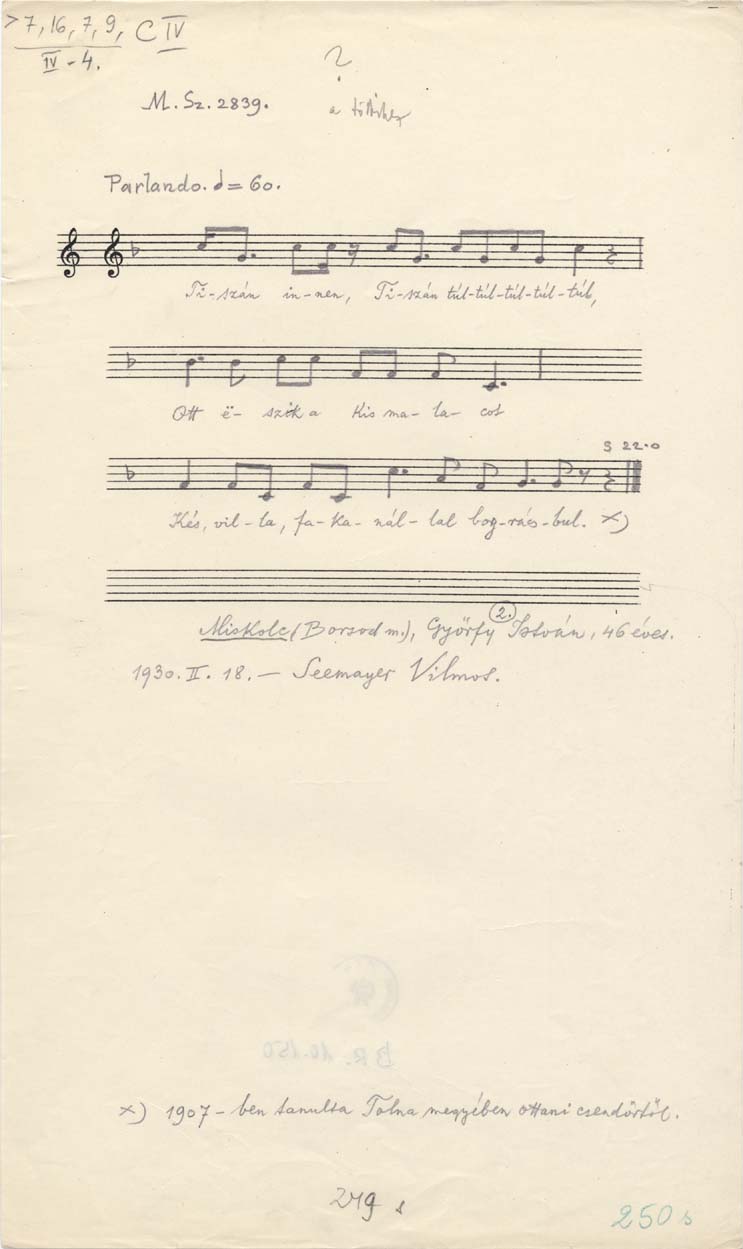 >7, 16, 7, 9, C IV
IV - 4.
?
M. Sz. 2839.
a
Parlando. = 60.
Ti-szán in-nen, Ti-szán túl-túl-túl-túl-túl,
Ott ë- szik a kis ma-la- cot
S 22.0
Kés, vil-la, fa-ka-nál-lal bog-rács-bul. x)
2.
Miskolc (Borsod m.), Györfy István, 46 éves.
1930. II. 18. — Seemayer Vilmos.
BR. 10.150
x) 1907-ben tanulta Tolna megyében ottani csendőrtől.
249 s
250 s